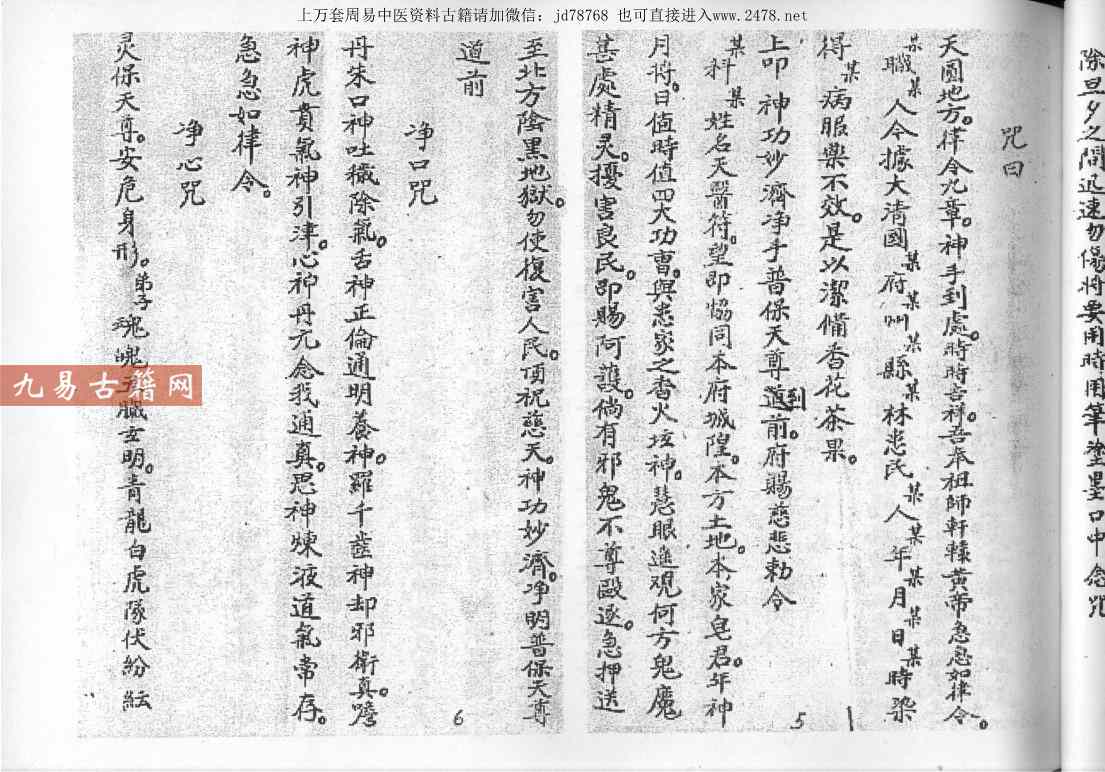 上万套周易中医资料古籍请加微信：jd78768 也可直接进入www.2478.net
除旦夕之間迅速勿傷将要用時用筆塗墨口中念咒
咒曰
天圓地方。律令九章。神手到處。時時吉祥。吾奉祖師軒轅黄帝急急如律令。
某職某人今據大清國某府某州某縣某林患民某人某年某月某日某時染
得某病服藥不效。是以潔備香花茶果。
上叩神功妙濟净手普保天尊到道前。府賜慈悲勅令
某科某姓名天醫符。望即協同本府城隍。本方土地。本家皂君。年神
月将。日值時值四大功曹。與患家之香火垃神。慧眼遥观何方鬼魔
甚處精灵。擾害良民。即賜阿護。倘有邪鬼不尊毆逐。急押送
5
至北方陰黑地獄。勿使復害人民。頂祝慈天。神功妙濟。净明普保天尊
道前
净口咒
丹朱口神吐穢除氣。舌神正倫通明養神。羅千齒神却邪衛真。喉
神虎賁氣神引津。心神丹元念我通真。思神煉液道氣常存。
急急如律令。
净心咒
灵保天尊。安危身形。弟子魂魄五臟玄明。青龍白虎隊伏紛紜
6
九易古籍网